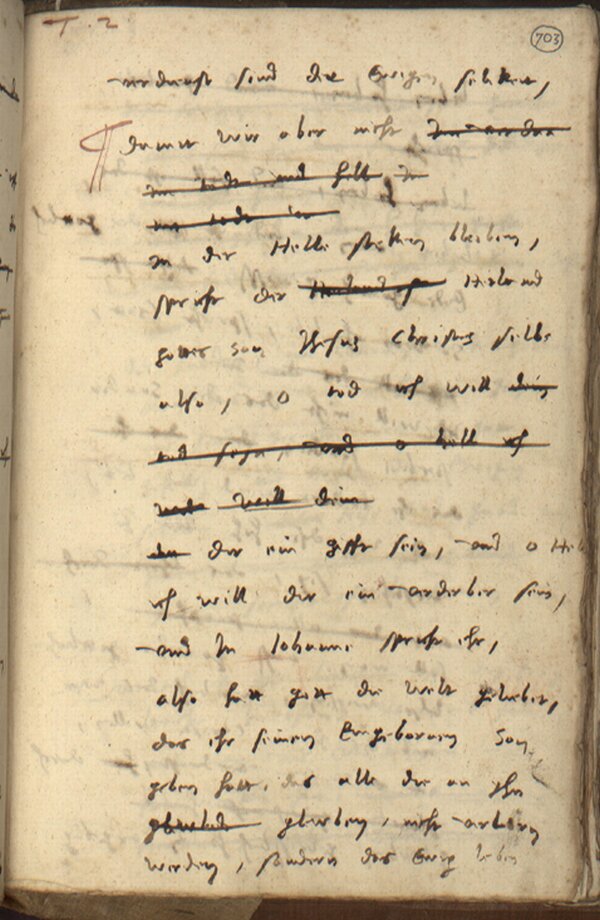 T. 2
703
verdampt sind der Ewigen selikeit,
damit wir aber nicht
im tode und hell in
in der Helle steken bleiben,
spricht der Heiland
gottes son Jhesus Christus selbs
also, O tod ich will dein
tod sein, und o hell ich
will dein
dir ein gifft sein, und o Hell
ich will dir ein verderber sein,
und In Iohanne spricht ehr,
also hatt gott die welt geliebet,
das ehr seinen Eingebornen Son
geben hatt, das alle die an yhn
glewben, nicht verloren
werden, sondern das Ewig leben